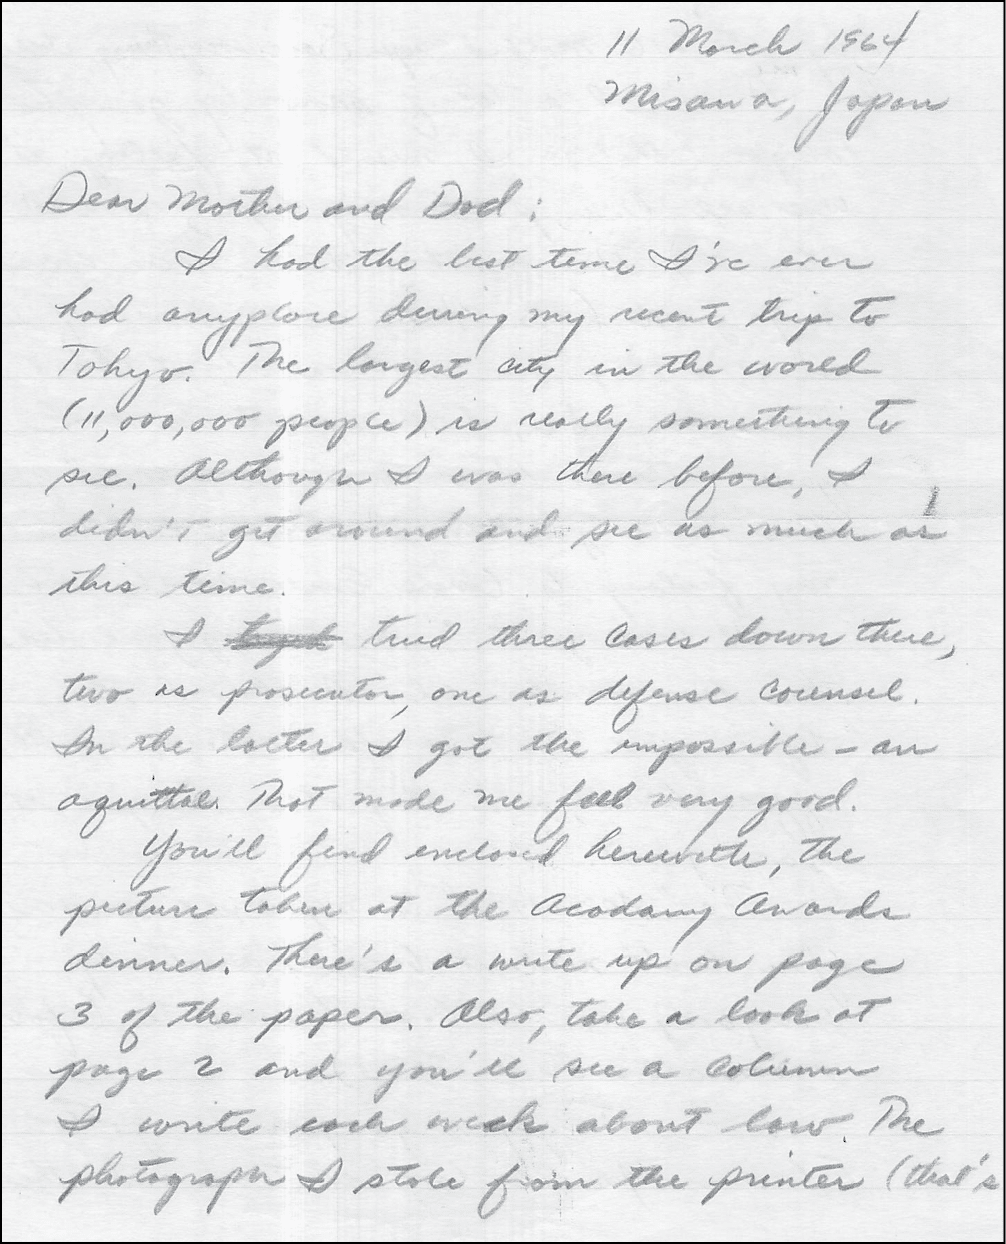 11 March 1964
Misawa, Japan
Dear Mother and Dad:
I had the best time I've ever
had anyplace during my recent trip to
Tokyo. The largest city in the world
(11,000,000 people) is really something to
see. Although I was there before, I
didn't get around and see as much as
this time.
I tried three cases down there,
two as prosecutor, one as defense counsel.
In the latter I got the impossible - an
aquittal. That made me feel very good.
You'll find enclosed herewith, the
picture taken at the Acadamy Awards
dinner. There's a write up on page
3 of the paper. Also, take a look at
page 2 and you'll see a column
I write each week about law. The
photograph I stole from the printer (that's